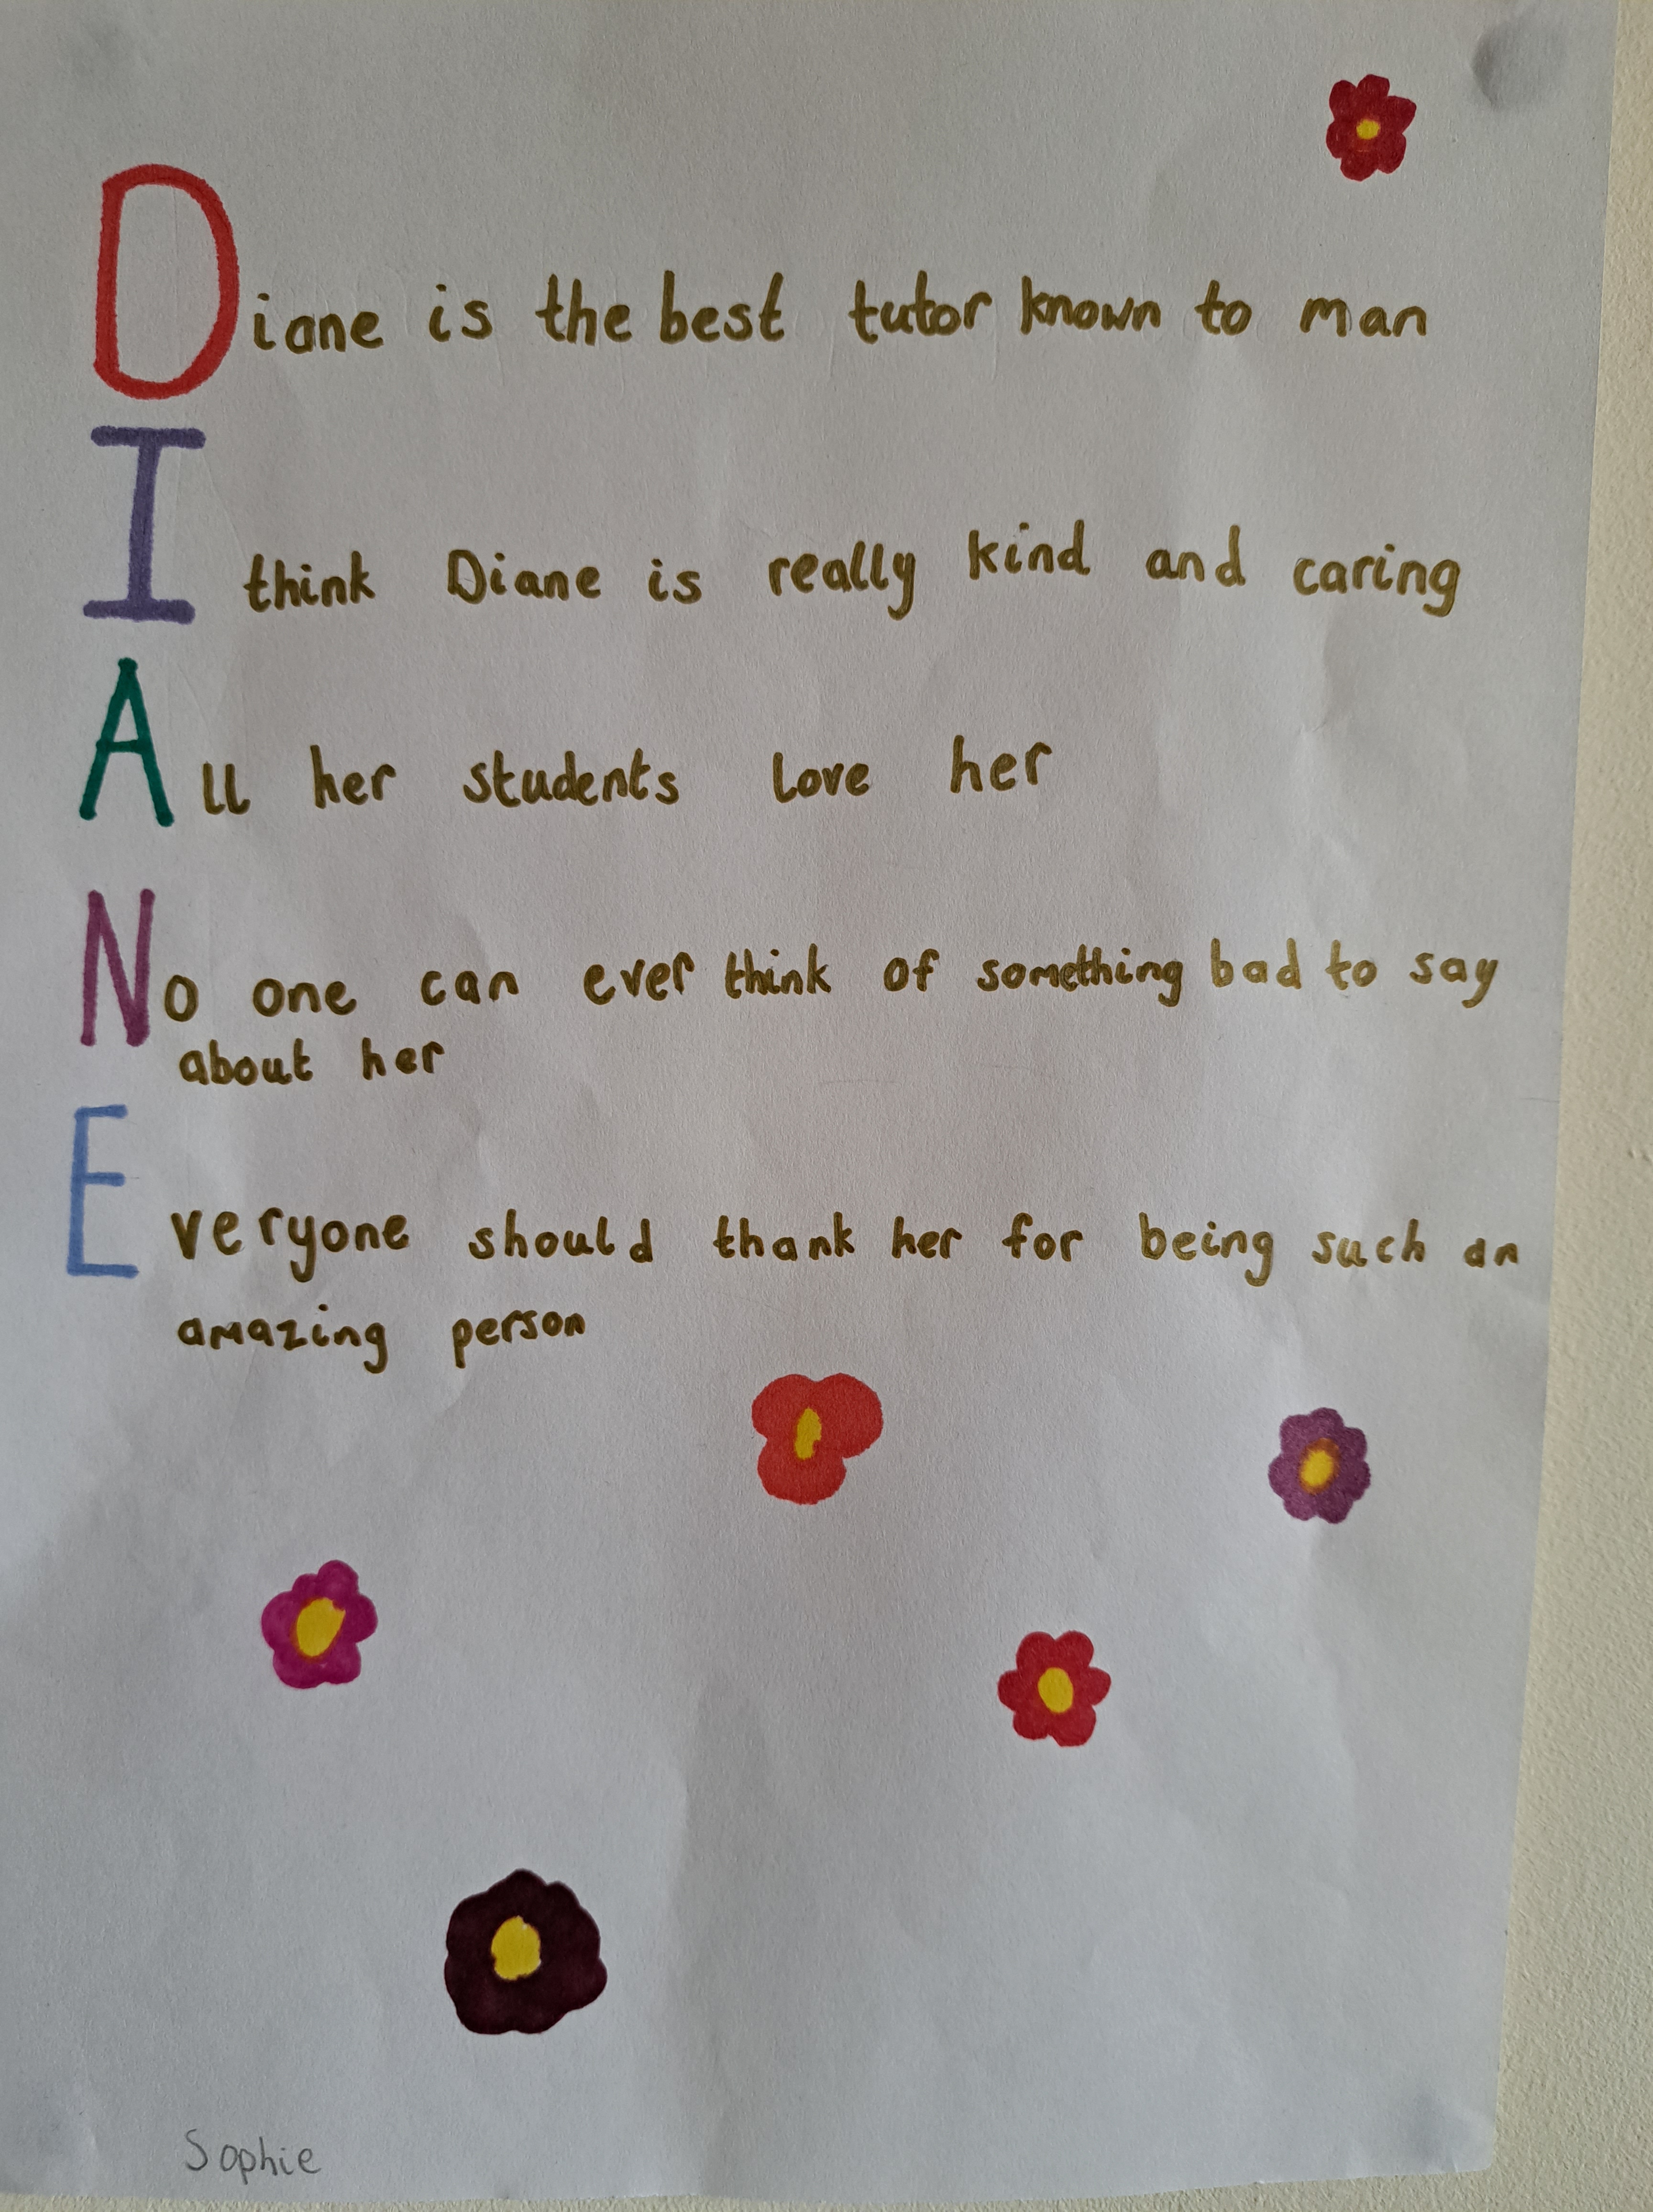 Diane is the best tutor known to man
I think Diane is really kind and caring
All her students love her
No one can ever think of something bad to say
about her
Everyone should thank her for being such an
amazing person
Sophie